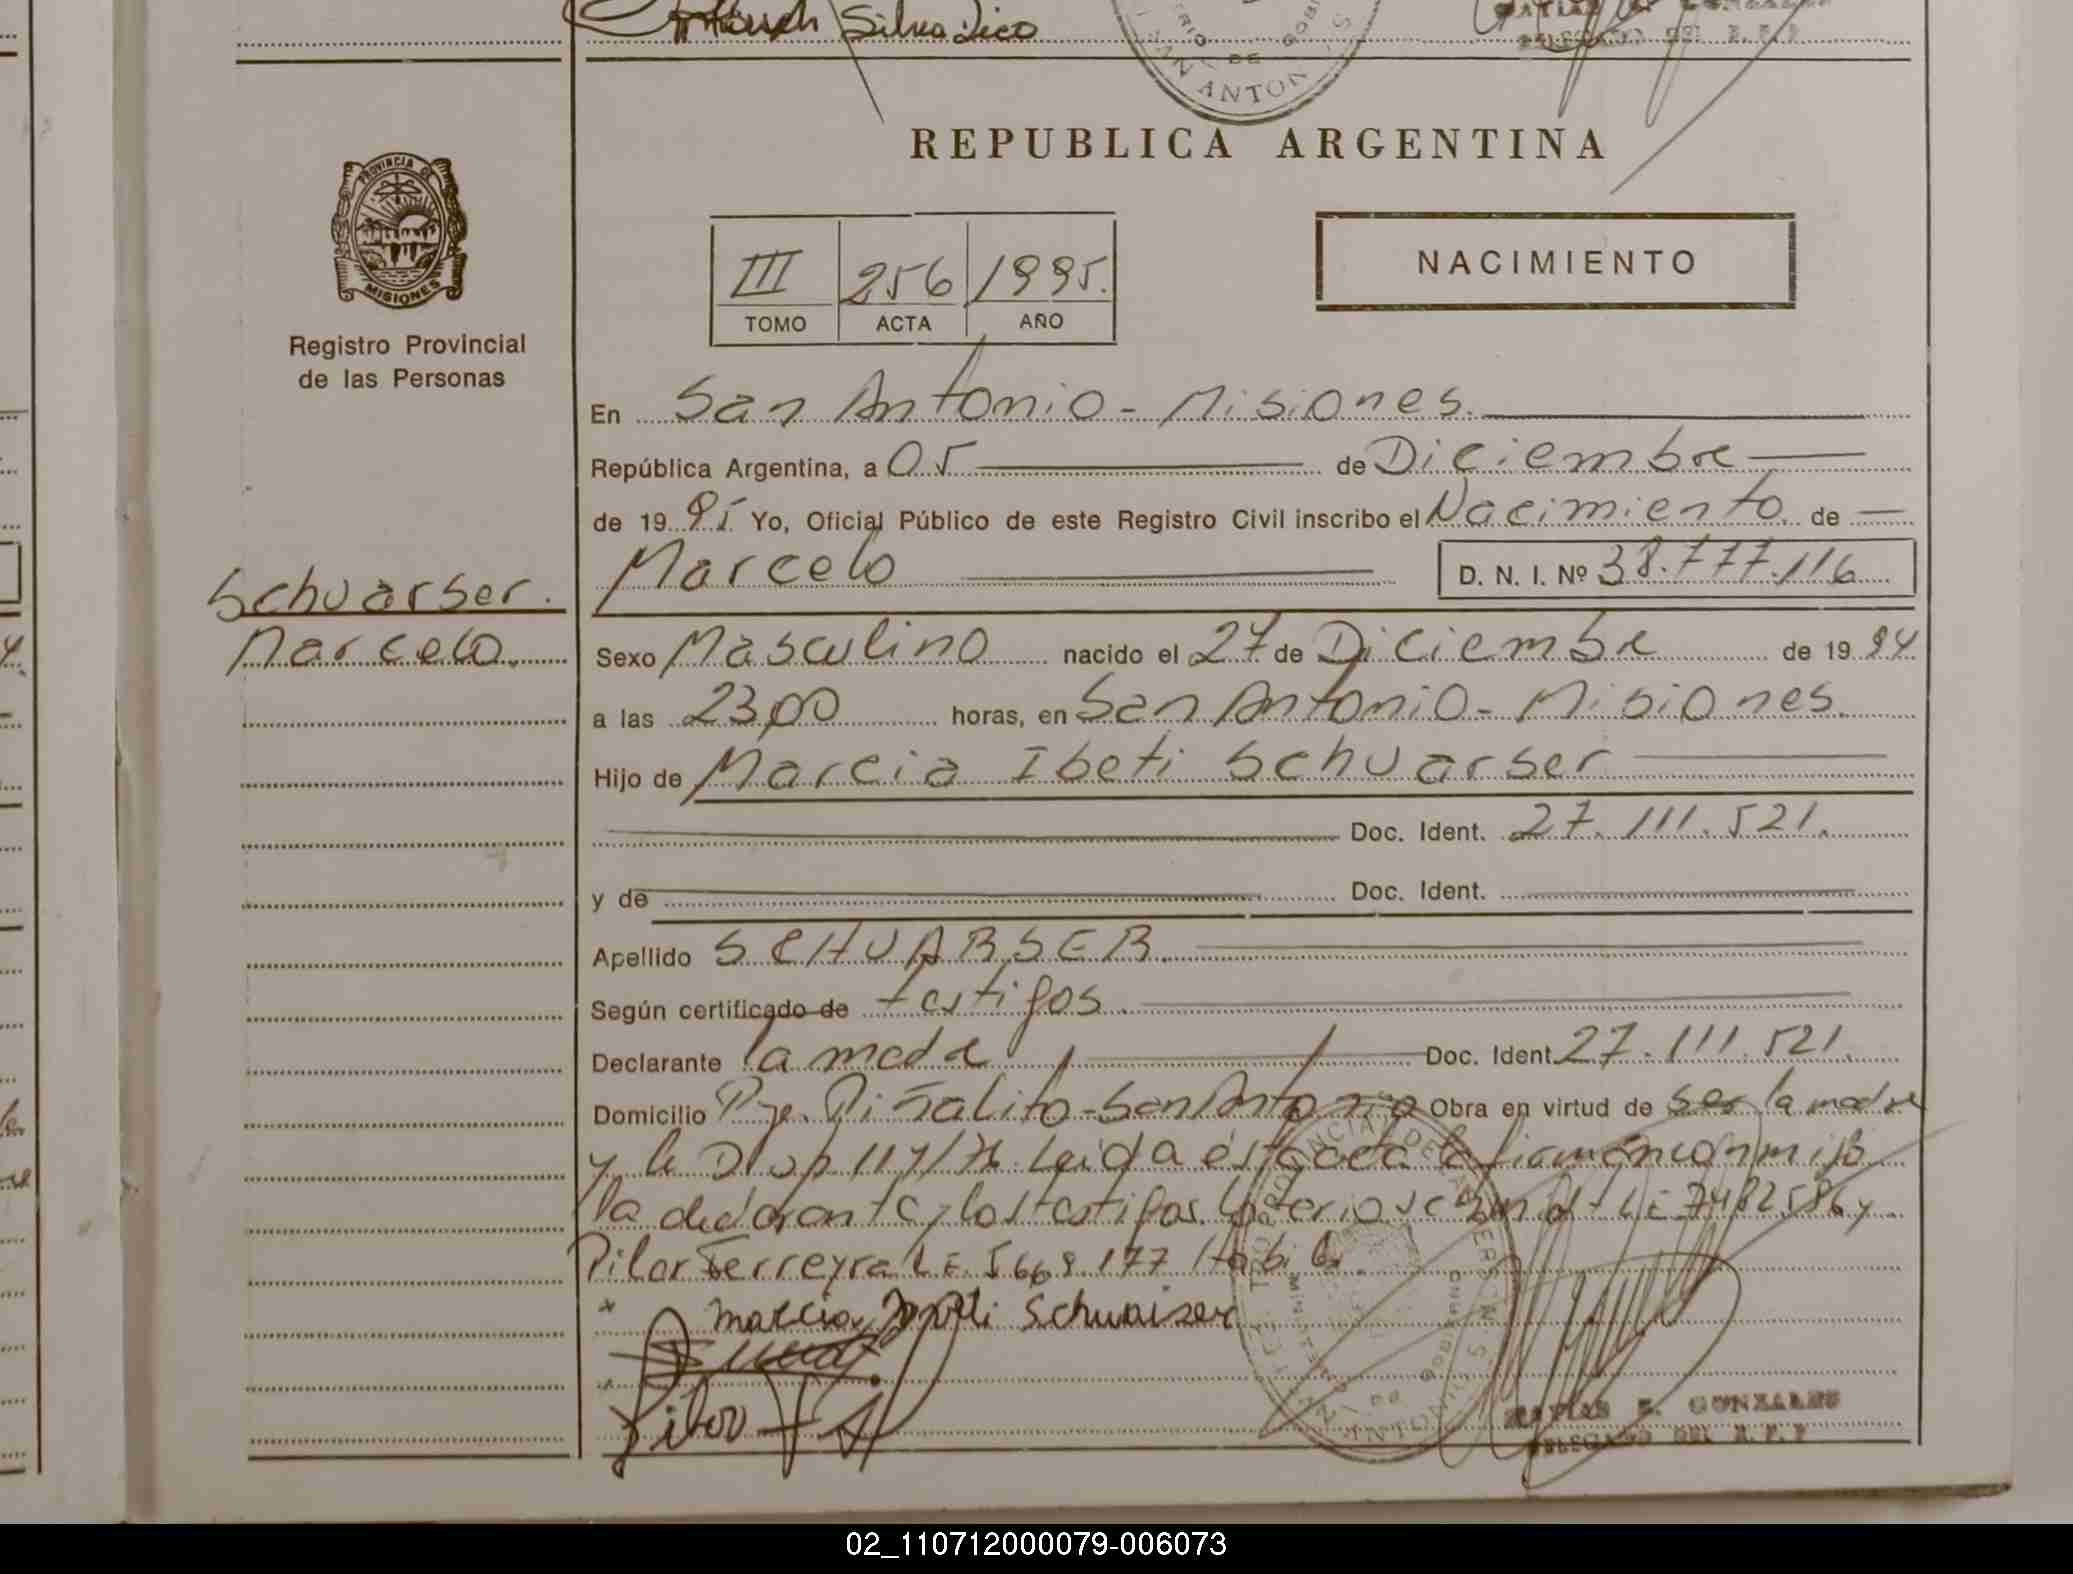 Silva Dico
DE
SAN ANTONIO
REPUBLICA ARGENTINA
PROVINCIA DE
MISIONES
Registro Provincial
de las Personas
NACIMIENTO
III 256 1995.
TOMO ACTA AÑO
En San Antonio - Misiones.
República Argentina, a 05 de Diciembre
de 19 95 Yo, Oficial Público de este Registro Civil inscribo el Nacimiento de
Marcelo D. N. I. Nº 38.777.116
Schuarser.
Marcelo.
Sexo Masculino nacido el 27 de Diciembre de 19 94
a las 23,00 horas, en San Antonio - Misiones.
Hijo de Marcia Ibeti Schuarser
Doc. Ident. 27.111.521.
y de Doc. Ident.
Apellido SCHUARSER.
Según certificado de testigos.
Declarante la madre Doc. Ident. 27.111.521.
Domicilio Pje. Piñalito - San Antonio Obra en virtud de ser la madre
y la 117/76 Leida esta acta la firman conmigo
la declarante, los testigos L.E. 7482586 y
Pilar Ferreyra L.E. 5669177
Marcia Schuarser
MATIAS E. GONZALES
DELEGADO DEL R.P.P
02_110712000079-006073